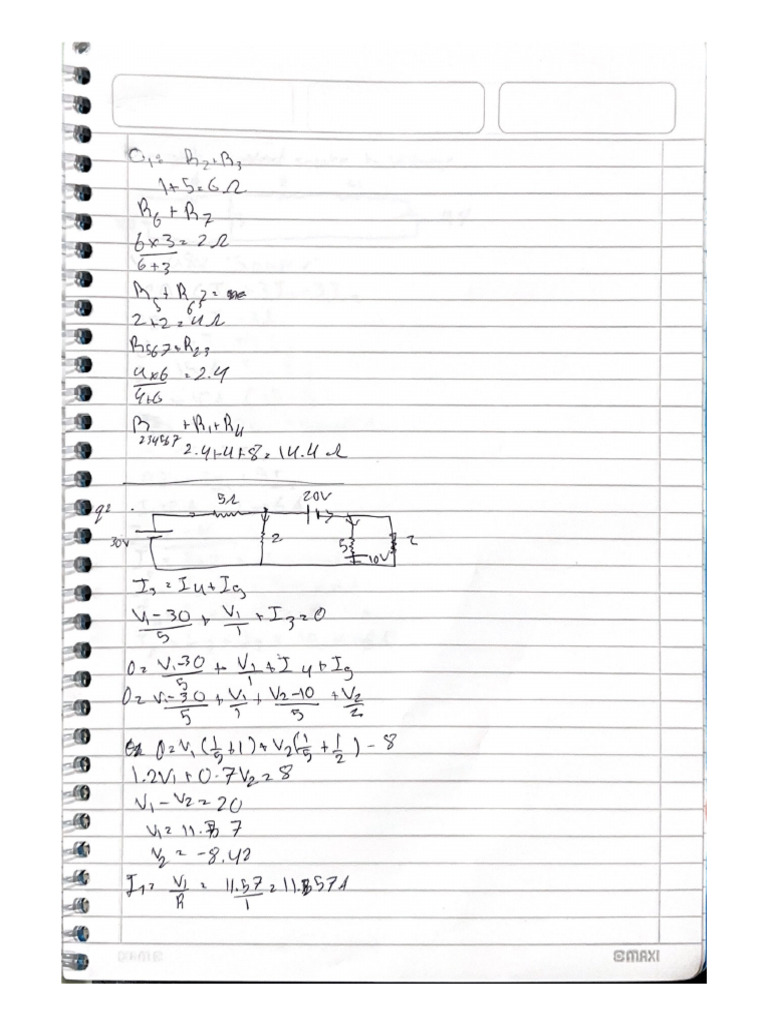 Q1= R2+R3
1+5=6Ω
R6 + R7
6×3 = 2Ω
6+3
R5 + R67 =
2+2=4Ω
R567+R23
4×6 = 2.4
4+6
R234567 +R1+R4
2.4+4+8=14.4Ω
q2
5Ω 20V
30V 2 5 10V 2
I3 = I4 + I5
V1-30/5 + V1/1 + I3=0
0= V1-30/5 + V1/1 + I4 + I5
0= V1-30/5 + V1/1 + V2-10/5 + V2/2
0=V1(1/5+1)+V2(1/5+1/2) - 8
1.2V1+0.7V2=8
V1-V2=20
V1=11.57
V2=-8.42
I1= V1/R = 11.57/1 = 11.57A
MAXI